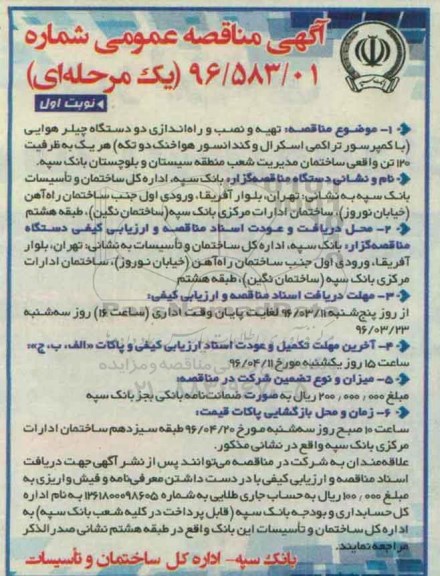 آگهی مناقصه عمومی شماره
۹۶/۵۸۳/۰۱ (یک مرحله‌ای)
نوبت اول
۱- موضوع مناقصه: تهیه و نصب و راه‌اندازی دو دستگاه چیلر هوایی
(با کمپرسور تراکمی اسکرال و کندانسور هواخنک دو تکه) هر یک به ظرفیت
۱۲۰ تن واقعی ساختمان مدیریت شعب منطقه سیستان و بلوچستان بانک سپه.
نام و نشانی دستگاه مناقصه‌گزار: بانک سپه، اداره کل ساختمان و تأسیسات
بانک سپه به نشانی: تهران، بلوار آفریقا، ورودی اول جنب ساختمان راه‌آهن
(خیابان نوروز)، ساختمان ادارات مرکزی بانک سپه (ساختمان نگین)، طبقه هشتم
۲- محل دریافت و عودت اسناد مناقصه و ارزیابی کیفی دستگاه
مناقصه‌گزار: بانک سپه، اداره کل ساختمان و تأسیسات به نشانی: تهران، بلوار
آفریقا، ورودی اول جنب ساختمان راه‌آهن (خیابان نوروز)، ساختمان ادارات
مرکزی بانک سپه (ساختمان نگین)، طبقه هشتم
۳- مهلت دریافت اسناد مناقصه و ارزیابی کیفی:
از روز پنج‌شنبه ۹۶/۰۳/۱۱ لغایت پایان وقت اداری (ساعت ۱۶) روز سه‌شنبه
۹۶/۰۳/۲۳
۴- آخرین مهلت تکمیل و عودت اسناد ارزیابی کیفی و پاکات «الف، ب، ج»:
ساعت ۱۵ روز یکشنبه مورخ ۹۶/۰۴/۱۱
۵- میزان و نوع تضمین شرکت در مناقصه:
مبلغ ۲۰۰,۰۰۰,۰۰۰ ریال به صورت ضمانت‌نامه بانکی بجز بانک سپه
۶- زمان و محل بازگشایی پاکات قیمت:
ساعت ۱۰ صبح روز سه‌شنبه مورخ ۹۶/۰۴/۲۰ طبقه سیزدهم ساختمان ادارات
مرکزی بانک سپه واقع در نشانی مذکور.
علاقه‌مندان به شرکت در مناقصه می‌توانند پس از نشر آگهی جهت دریافت
اسناد مناقصه و ارزیابی کیفی با در دست داشتن معرفی‌نامه و فیش واریزی به
مبلغ ۱۰۰,۰۰۰ ریال به حساب جاری طلایی به شماره ۱۲۶۱۸۰۰۰۹۸۶۰۵ به نام اداره
کل حسابداری و بودجه بانک سپه (قابل پرداخت در کلیه شعب بانک سپه) به
اداره کل ساختمان و تأسیسات این بانک واقع در طبقه هشتم نشانی صدر الذکر
مراجعه نمایند.
بانک سپه- اداره کل ساختمان و تأسیسات